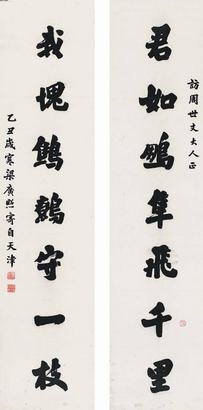 访周世丈大人正
君如鵰隼飛千里
我愧鷦鷯守一枝
乙丑歲寒梁廣照寄自天津